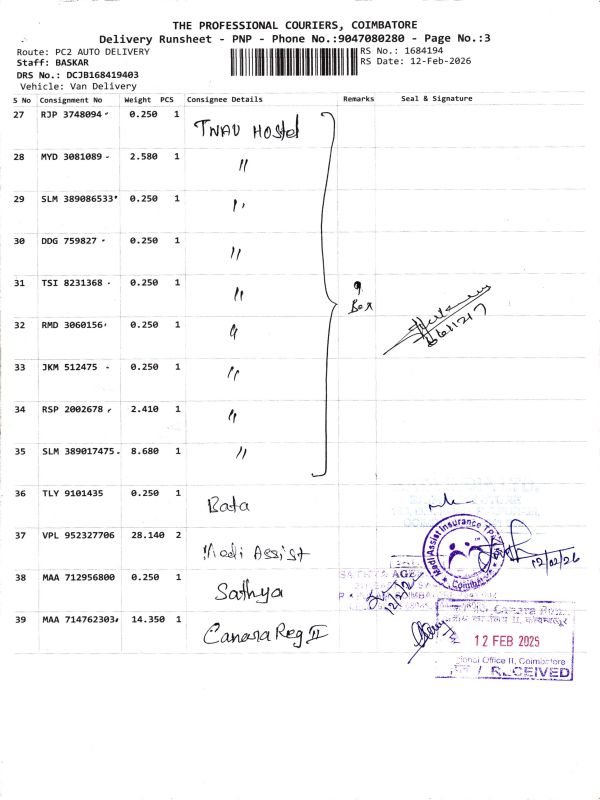 THE PROFESSIONAL COURIERS, COIMBATORE
Delivery Runsheet - PNP - Phone No.:9047080280 - Page No.:3
Route: PC2 AUTO DELIVERY
Staff: BASKAR
DRS No.: DCJB168419403
Vehicle: Van Delivery
RS No.: 1684194
RS Date: 12-Feb-2026
S No Consignment No Weight PCS Consignee Details Remarks Seal & Signature
27 RJP 3748094 0.250 1 TNAU Hostel
28 MYD 3081089 2.580 1 "
29 SLM 389086533 0.250 1 "
30 DDG 759827 0.250 1 "
31 TSI 8231368 0.250 1 " 9 Box
32 RMD 3060156 0.250 1 "
33 JKM 512475 0.250 1 "
34 RSP 2002678 2.410 1 "
35 SLM 389017475 8.680 1 "
36 TLY 9101435 0.250 1 Bata
37 VPL 952327706 28.140 2 Medi Assist
Medi Assist Insurance TPA
Coimbatore
12/02/26
38 MAA 712956800 0.250 1 Sathya
39 MAA 714762303 14.350 1 Canara Reg II
Canara
12 FEB 2025
Office II, Coimbatore
RECEIVED